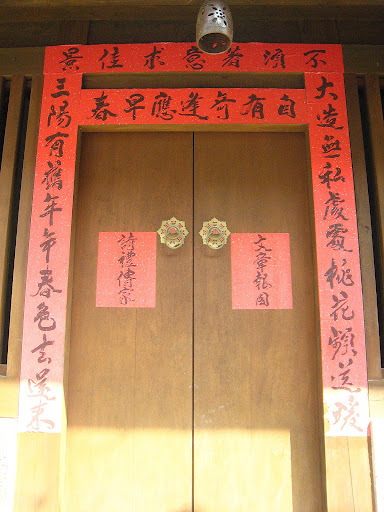 不須著意求佳景
自有奇逢應早春
大造無私處處桃花頻送暖
三陽有舊年年春色去還來
文章報國
詩禮傳家